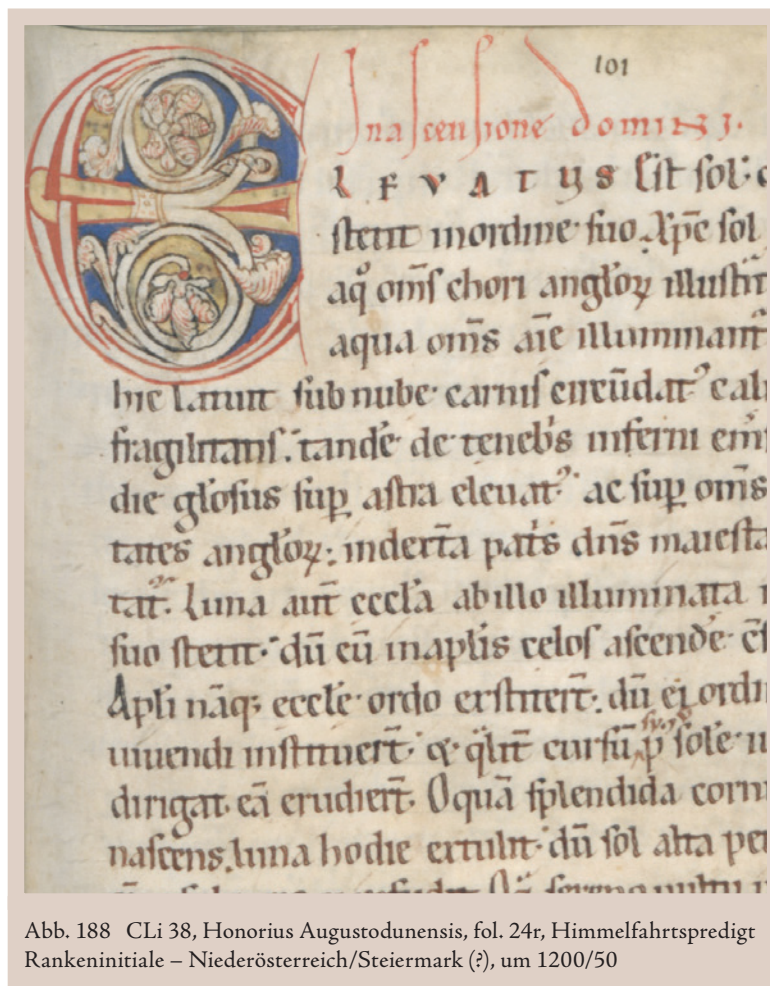 101
In ascensione domini.
ELEVATUS Est sol: &
stetit inordine suo. Xp̄c sol
aq° om̄s chori angl̓oꝝ illust̄
aqua om̄s aīe illuminant̄
hic latuit sub nube carnis
fragilitatis. tandē de teneb̓s inferni
die gl̓osus suꝑ astra eleuatꝰ ac suꝑ om̄s
tates angl̓oꝝ: indext̄a pat̓s dn̄s maiesta
tat̄. Luna aut̄ eccl̓a abillo illuminata
suo stetit. dū eū inapl̓is celos ascende
Apl̓i nāqꝫ eccl̓e ordo extiter̄t. dū ei ordi
uiuendi instituer̄t. & q̓lit̄ cursū sole
dirigat. eā erudier̄t. O quā splendida corn
nascens luna hodie extulit. dū sol alta pe
Abb. 188 CLi 38, Honorius Augustodunensis, fol. 24r, Himmelfahrtspredigt
Rankeninitiale – Niederösterreich/Steiermark (?), um 1200/50